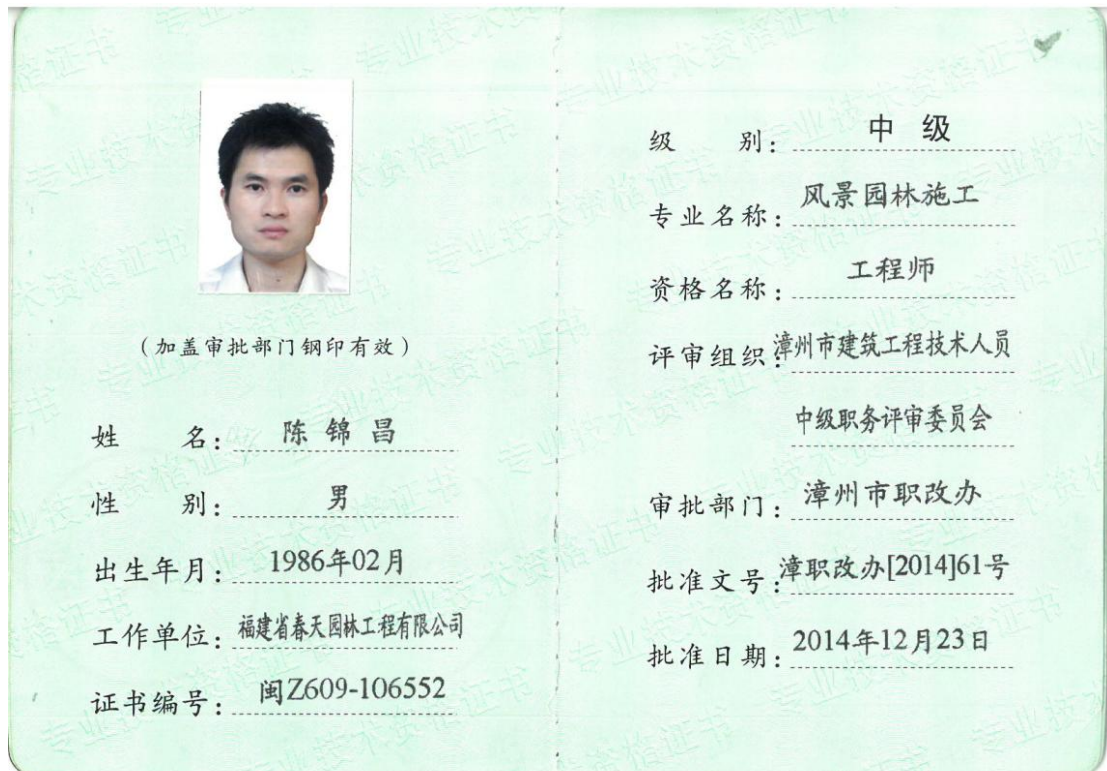 （加盖审批部门钢印有效）
姓 名：陈锦昌
性 别：男
出生年月：1986年02月
工作单位：福建省春天园林工程有限公司
证书编号：闽Z609-106552
级 别：中级
专业名称：风景园林施工
资格名称：工程师
评审组织：漳州市建筑工程技术人员
中级职务评审委员会
审批部门：漳州市职改办
批准文号：漳职改办[2014]61号
批准日期：2014年12月23日
专业技术资格证书